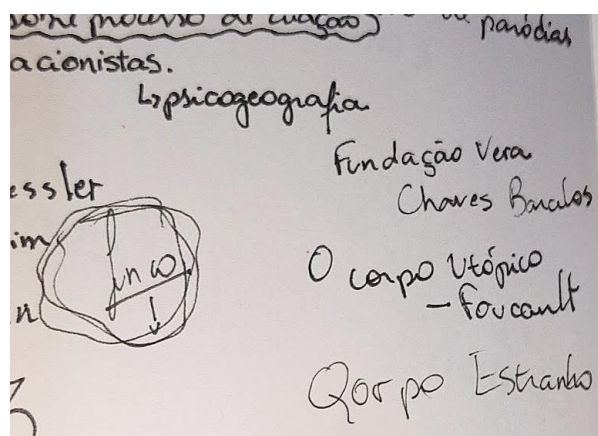 sobre processo de criação) de paródias
acionistas.
↳ psicogeografia
Fundação Vera
Chaves Barcelos
essler
im
O corpo utópico
- Foucault
n
Qorpo Estranho